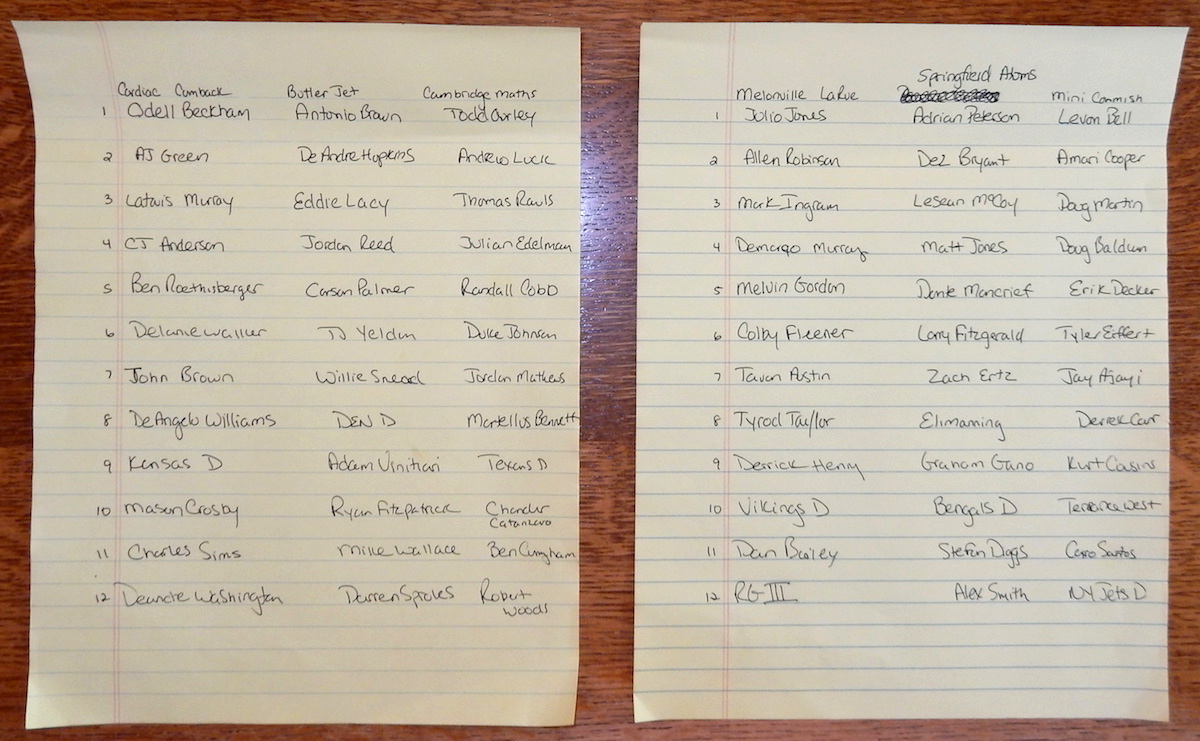 Cardiac Cumback Butler Jet Cambridge maths
1 Odell Beckham Antonio Brown Todd Gurley
2 AJ Green De Andre Hopkins Andrew Luck
3 Latavis Murray Eddie Lacy Thomas Rawls
4 CJ Anderson Jordan Reed Julian Edelman
5 Ben Roethisberger Carson Palmer Randall Cobb
6 Delanie walker TJ Yeldon Duke Johnson
7 John Brown Willie Snead Jordan Mathews
8 DeAngelo Williams DEN D Martellus Bennett
9 Kansas D Adam Vinitiari Texans D
10 Mason Crosby Ryan Fitzpatrick Chandler
Catanzaro
11 Charles Sims Mike Wallace Ben Cungham
12 Deandre Washington Darren Sproles Robert
Woods
Springfield Atoms
Melonville LaRue Mini Commish
1 Julio Jones Adrian Peterson Levon Bell
2 Allen Robinson Dez Bryant Amari Cooper
3 Mark Ingram Lesean McCoy Doug Martin
4 Demarqo Murray Matt Jones Doug Baldwin
5 Melvin Gordon Donte Moncrief Erik Decker
6 Colby Fleener Larry Fitzgerald Tyler Eiffert
7 Tavon Austin Zach Ertz Jay Ajayi
8 Tyrod Taylor Eli manning Derrek Carr
9 Derrick Henry Graham Gano Kurt Cousins
10 Vikings D Bengals D Terrance West
11 Dan Bailey Stefon Diggs Cairo Santos
12 RG III Alex Smith NY Jets D